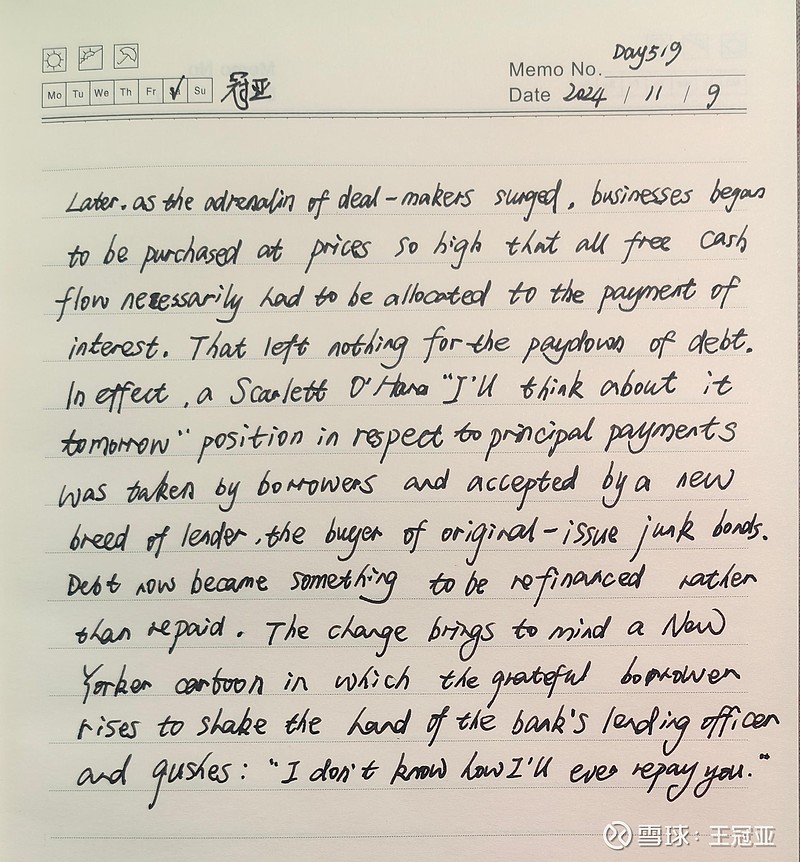 Day519
Memo No.
Mo Tu We Th Fr Sa Su 冠亚
Date 2024 / 11 / 9
Later, as the adrenalin of deal-makers surged, businesses began
to be purchased at prices so high that all free cash
flow necessarily had to be allocated to the payment of
interest. That left nothing for the paydown of debt.
In effect, a Scarlett O'Hara "I'll think about it
tomorrow" position in respect to principal payments
was taken by borrowers and accepted by a new
breed of lender, the buyer of original-issue junk bonds.
Debt now became something to be refinanced rather
than repaid. The change brings to mind a New
Yorker cartoon in which the grateful borrower
rises to shake the hand of the bank's lending officer
and gushes: "I don't know how I'll ever repay you."
雪球:王冠亚